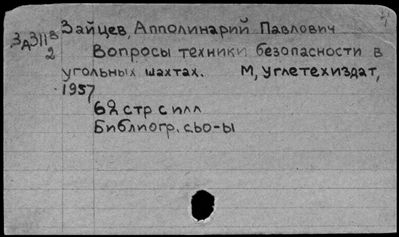 Зайцев, Апполинарий Павлович
3А311в
2
Вопросы техники безопасности в
угольных шахтах. М, Углетехиздат,
1957
62 стр с илл
Библиогр. сьо-ы